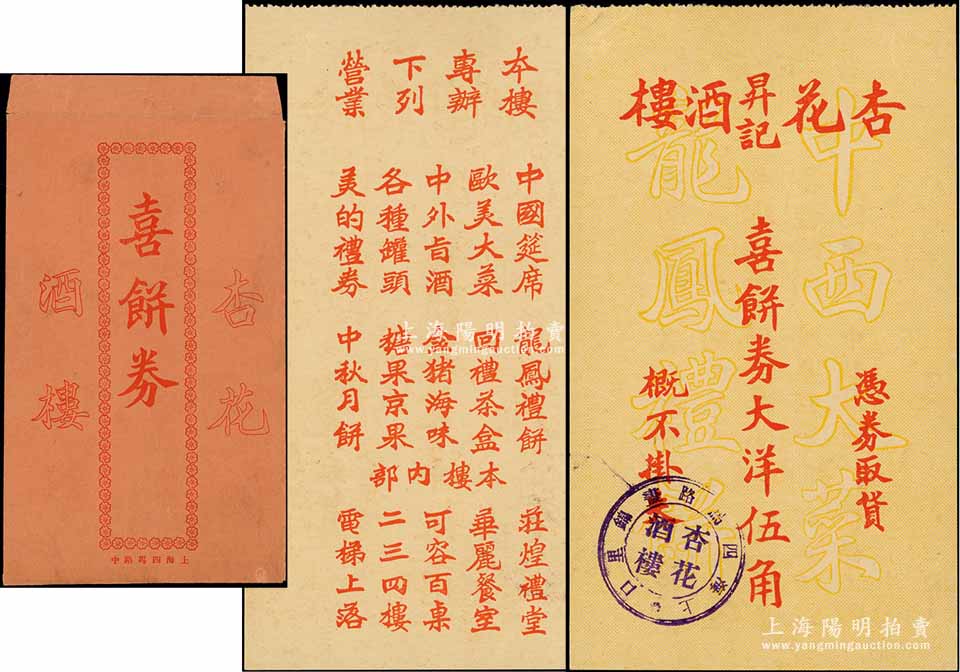 喜餅券
杏花
酒樓
上海四馬路中
本樓
專辦
下列
營業
中國筵席
歐美大菜
中外旨酒
各種罐頭
美的禮券
龍鳳禮餅
回禮茶盒
金猪海味
糖果京果
中秋月餅
本樓內部
莊煌禮堂
華麗餐室
可容百桌
二三四樓
電梯上落
杏花
昇記
酒樓
中西大菜
龍鳳禮
憑券取貨
喜餅券大洋伍角
概不掛
杏花
酒樓
上海陽明拍賣
www.yangmingauction.com
上海陽明拍賣
www.yangmingauction.com